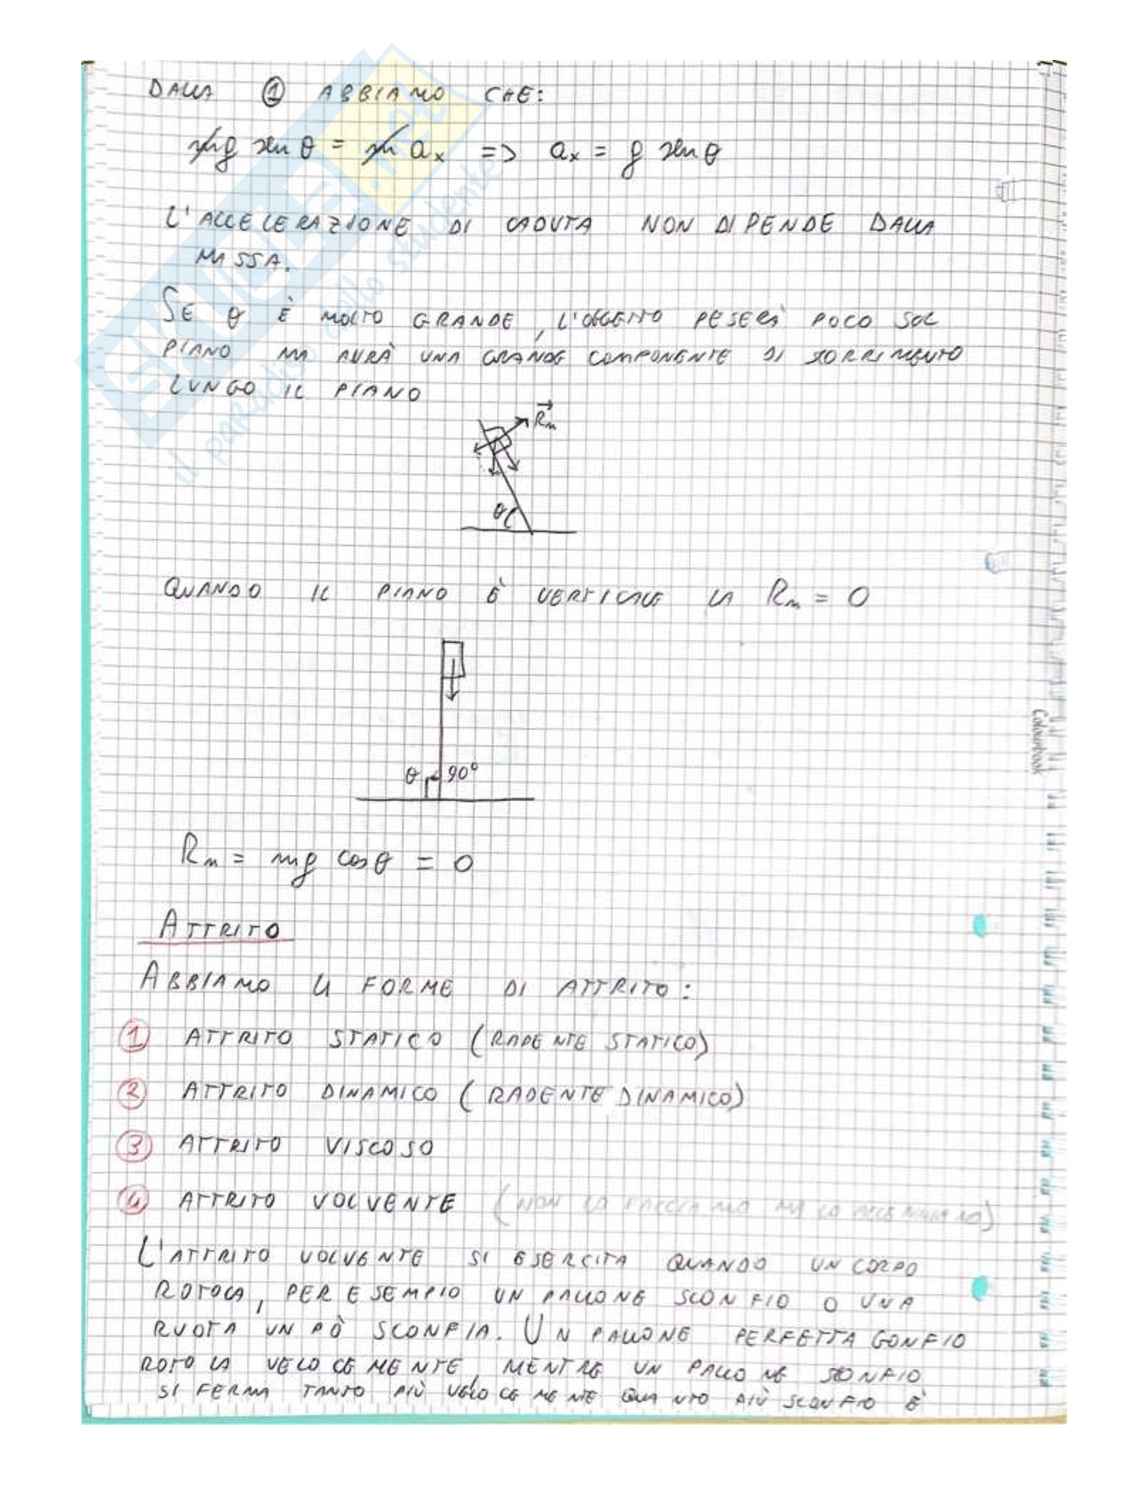 DALLA ① ABBIAMO CHE:
mg sen θ = m aₓ => aₓ = g sen θ
L'ACCELERAZIONE DI CADUTA NON DIPENDE DALLA
MASSA.
SE θ È MOLTO GRANDE, L'OGGETTO PESERÀ POCO SUL
PIANO MA AVRÀ UNA GRANDE COMPONENTE DI SCORRIMENTO
LUNGO IL PIANO
Rₙ
θ
QUANDO IL PIANO È VERTICALE LA Rₙ = 0
θ 90°
Rₙ = mg cos θ = 0
ATTRITO
ABBIAMO 4 FORME DI ATTRITO:
① ATTRITO STATICO (RADENTE STATICO)
② ATTRITO DINAMICO (RADENTE DINAMICO)
③ ATTRITO VISCOSO
④ ATTRITO VOLVENTE (NON LO FACCIAMO MA LO ACCENNIAMO)
L'ATTRITO VOLVENTE SI ESERCITA QUANDO UN CORPO
ROTOLA, PER ESEMPIO UN PALLONE SCONFIO O UNA
RUOTA UN PÒ SCONFIA. UN PALLONE PERFETTA GONFIO
ROTOLA VELOCEMENTE, MENTRE UN PALLONE SCONFIO
SI FERMA TANTO PIÙ VELOCEMENTE QUANTO PIÙ SCONFIO È
Colourbook